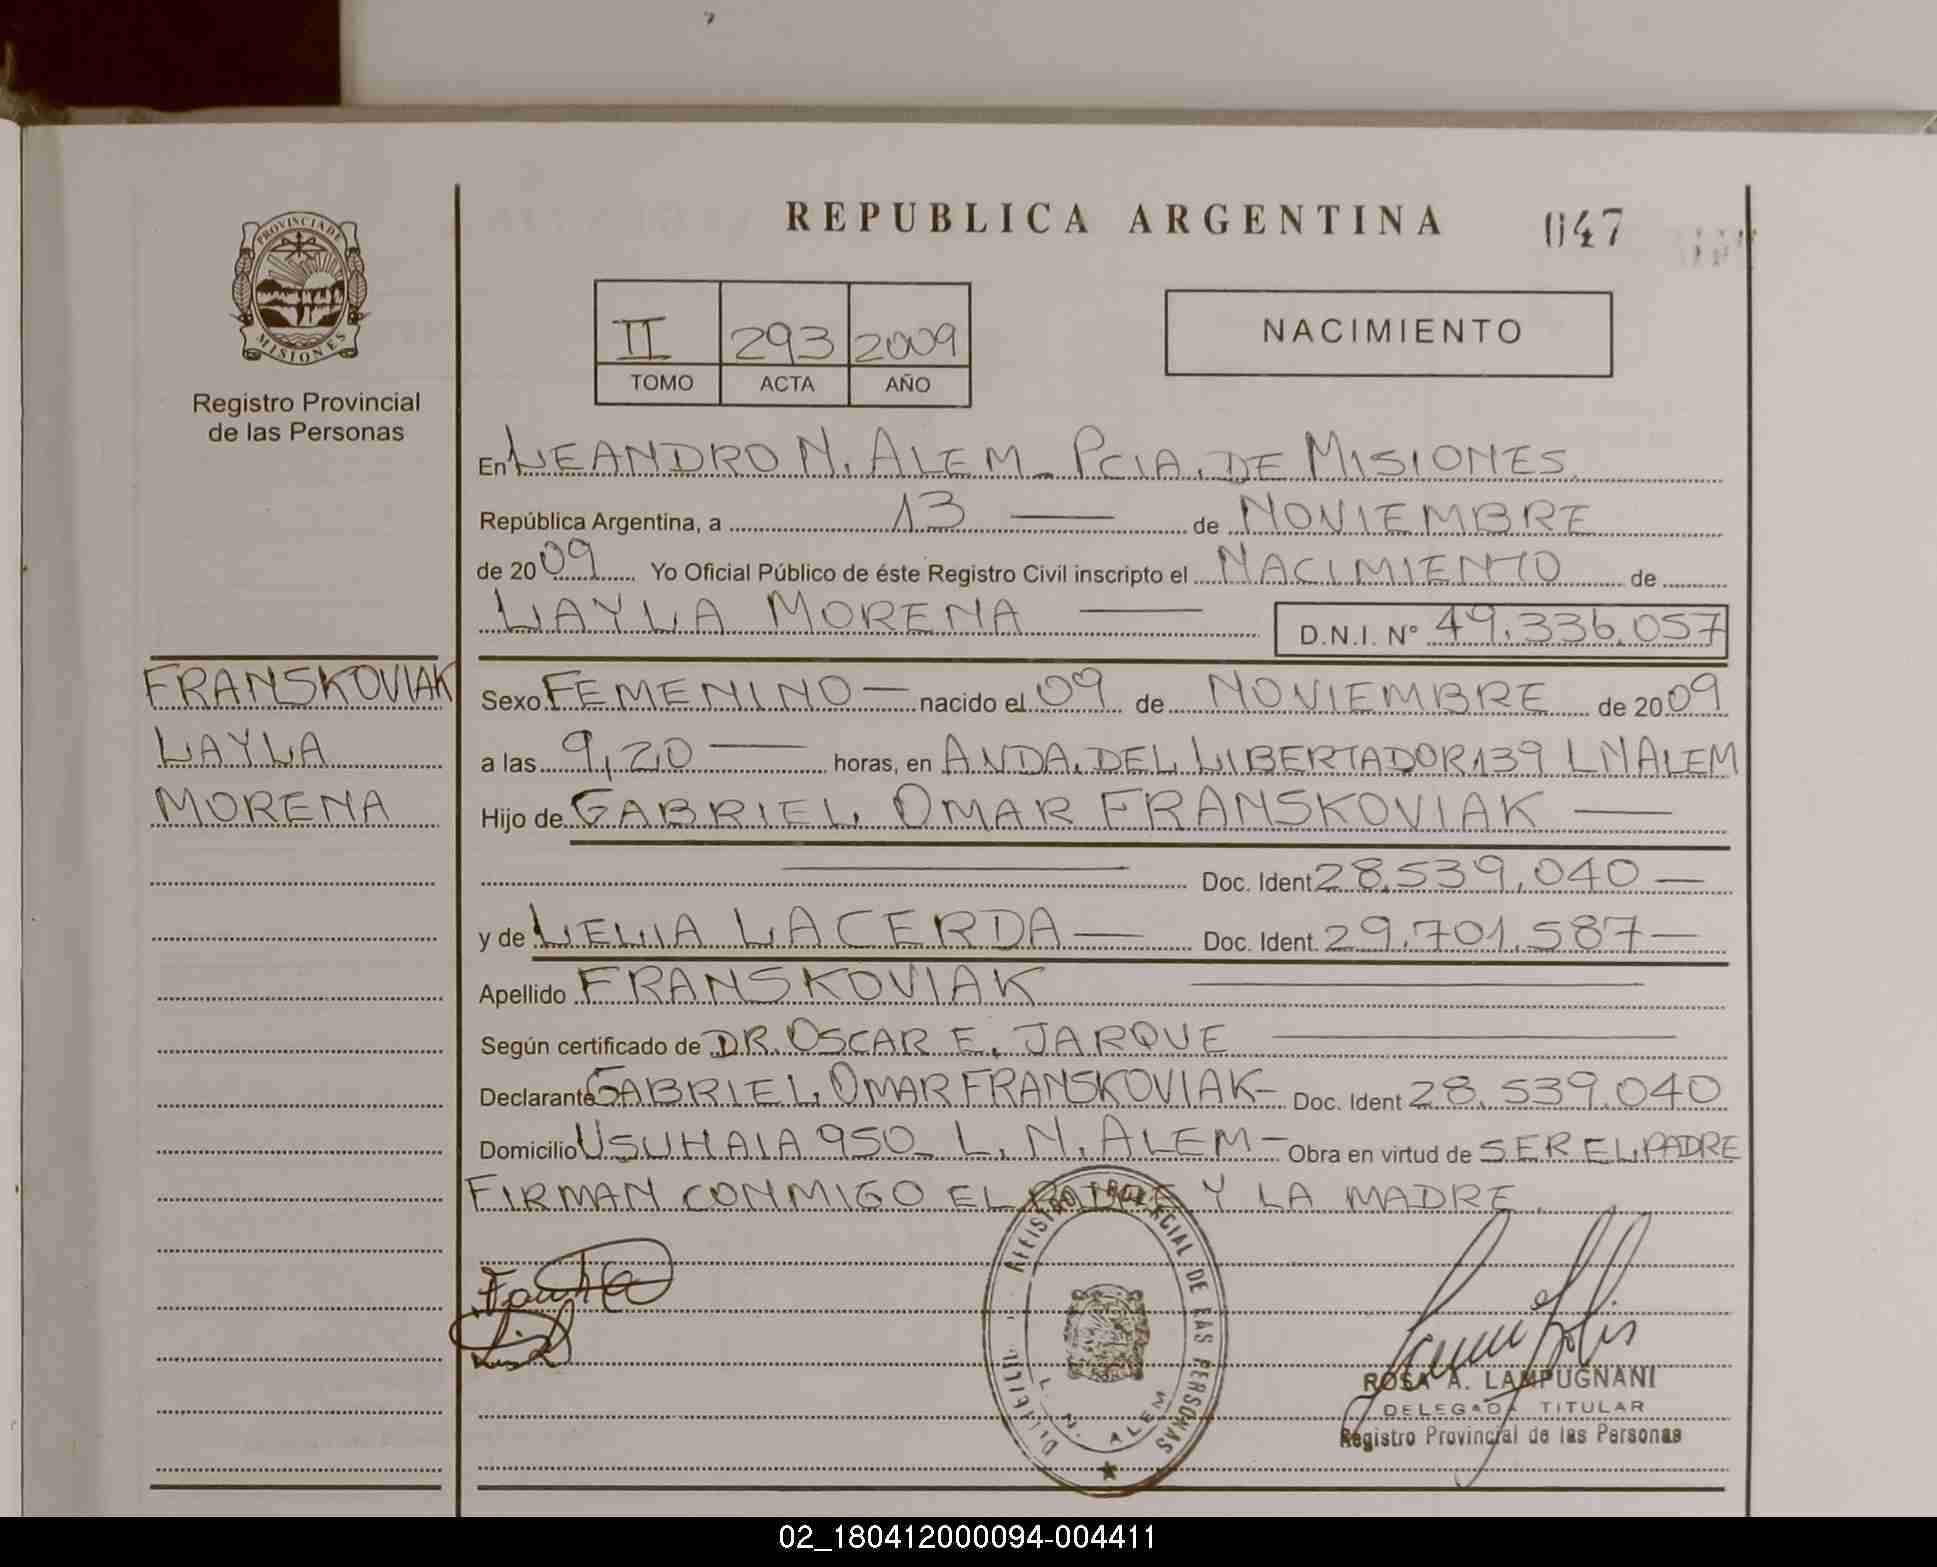 REPUBLICA ARGENTINA
047
PROVINCIA DE
MISIONES
Registro Provincial
de las Personas
II 293 2009
TOMO ACTA AÑO
NACIMIENTO
En LEANDRO N. ALEM - PCIA. DE MISIONES
República Argentina, a 13 — de NOVIEMBRE
de 2009 Yo Oficial Público de éste Registro Civil inscripto el NACIMIENTO de
LAYLA MORENA — D.N.I. N° 49.336.057
FRANSKOVIAK
LAYLA
MORENA
Sexo FEMENINO — nacido el 09 de NOVIEMBRE de 2009
a las 9,20 — horas, en AVDA. DEL LIBERTADOR 139 LNALEM
Hijo de GABRIEL OMAR FRANSKOVIAK —
— Doc. Ident 28.539.040 —
y de LELIA LACERDA — Doc. Ident. 29.701.587 —
Apellido FRANSKOVIAK —
Según certificado de DR. OSCAR E. JARQUE —
Declarante GABRIEL OMAR FRANSKOVIAK - Doc. Ident 28.539.040
Domicilio USUHAIA 950 - L. N. ALEM - Obra en virtud de SER EL PADRE
FIRMAN CONMIGO EL PADRE Y LA MADRE.
REGISTRO PROVINCIAL DE LAS PERSONAS
L. N. ALEM
ROSA A. LAMPUGNANI
DELEGADA TITULAR
Registro Provincial de las Personas
02_180412000094-004411